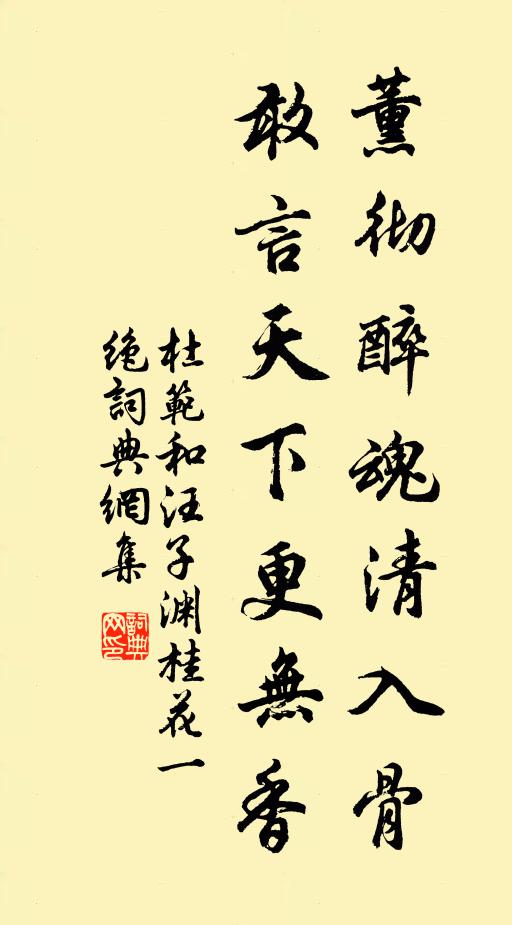 薰彻醉魂清入骨
敢言天下更無香
杜範和汪子渊桂花一
绝詞典網集
詞典网印